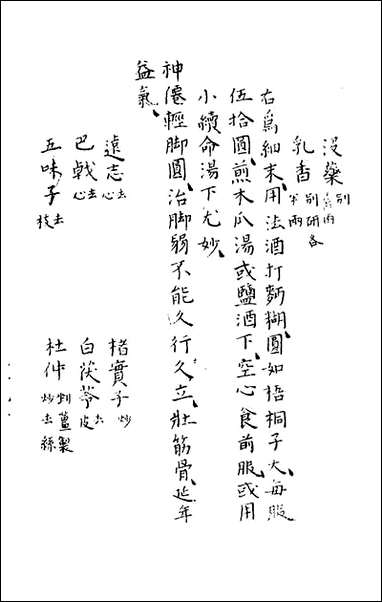 没藥別爲両
乳香別研各半兩
右爲細末用法酒打麪糊圓如梧桐子大每服
伍拾圓煎木瓜湯或鹽酒下空心食前服或用
小續命湯下尤妙
神僊輕脚圓治脚弱不能久行久立壯筋骨延年
益氣
遠志去心 楮實子炒
巴戟去心 白茯苓去皮
五味子去枝 杜仲剉薑製炒去絲